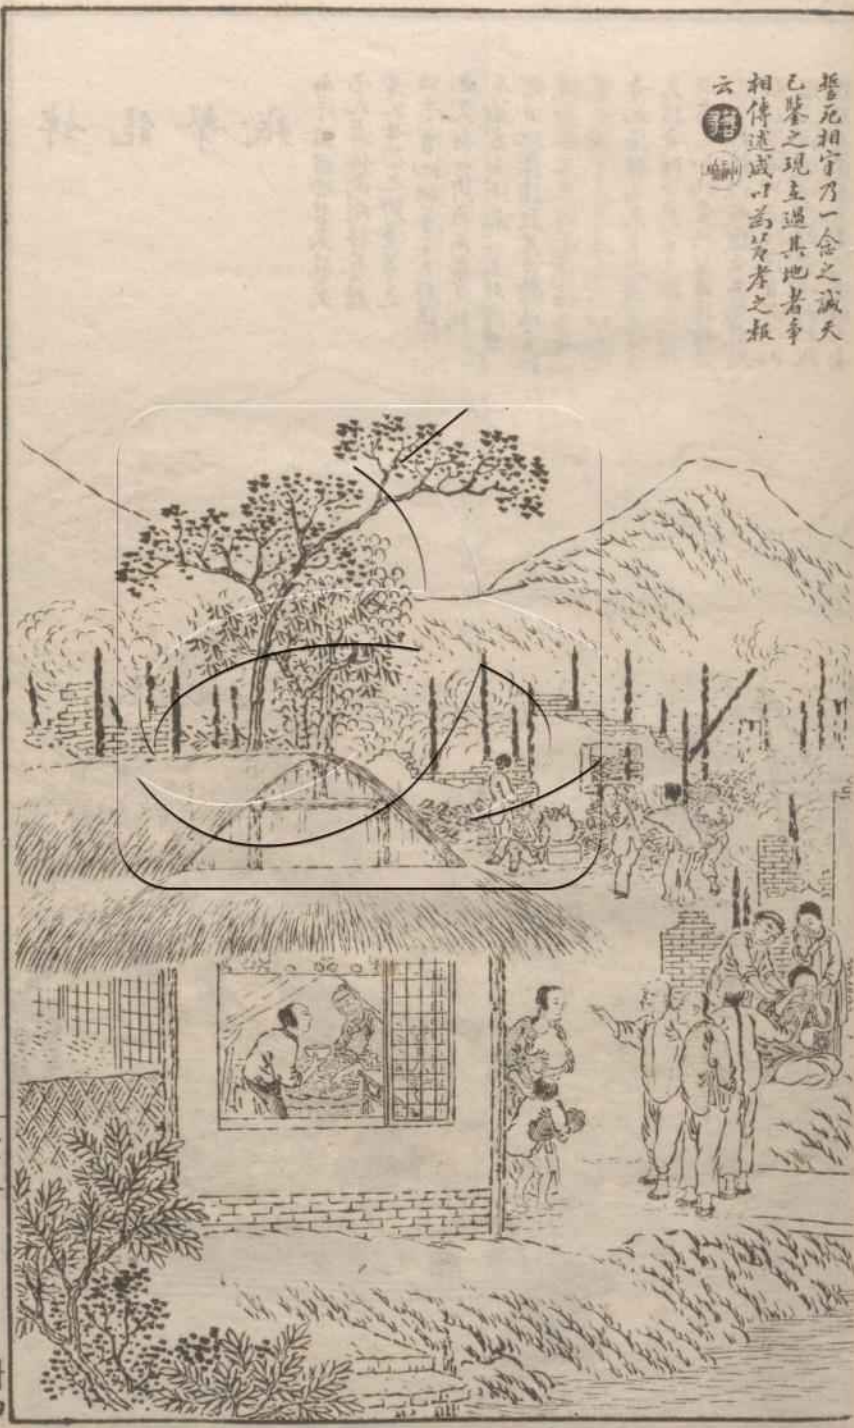 誓死相守乃一念之誠天
已鑒之現在過其地者爭
相傳述咸以為苦孝之報
云